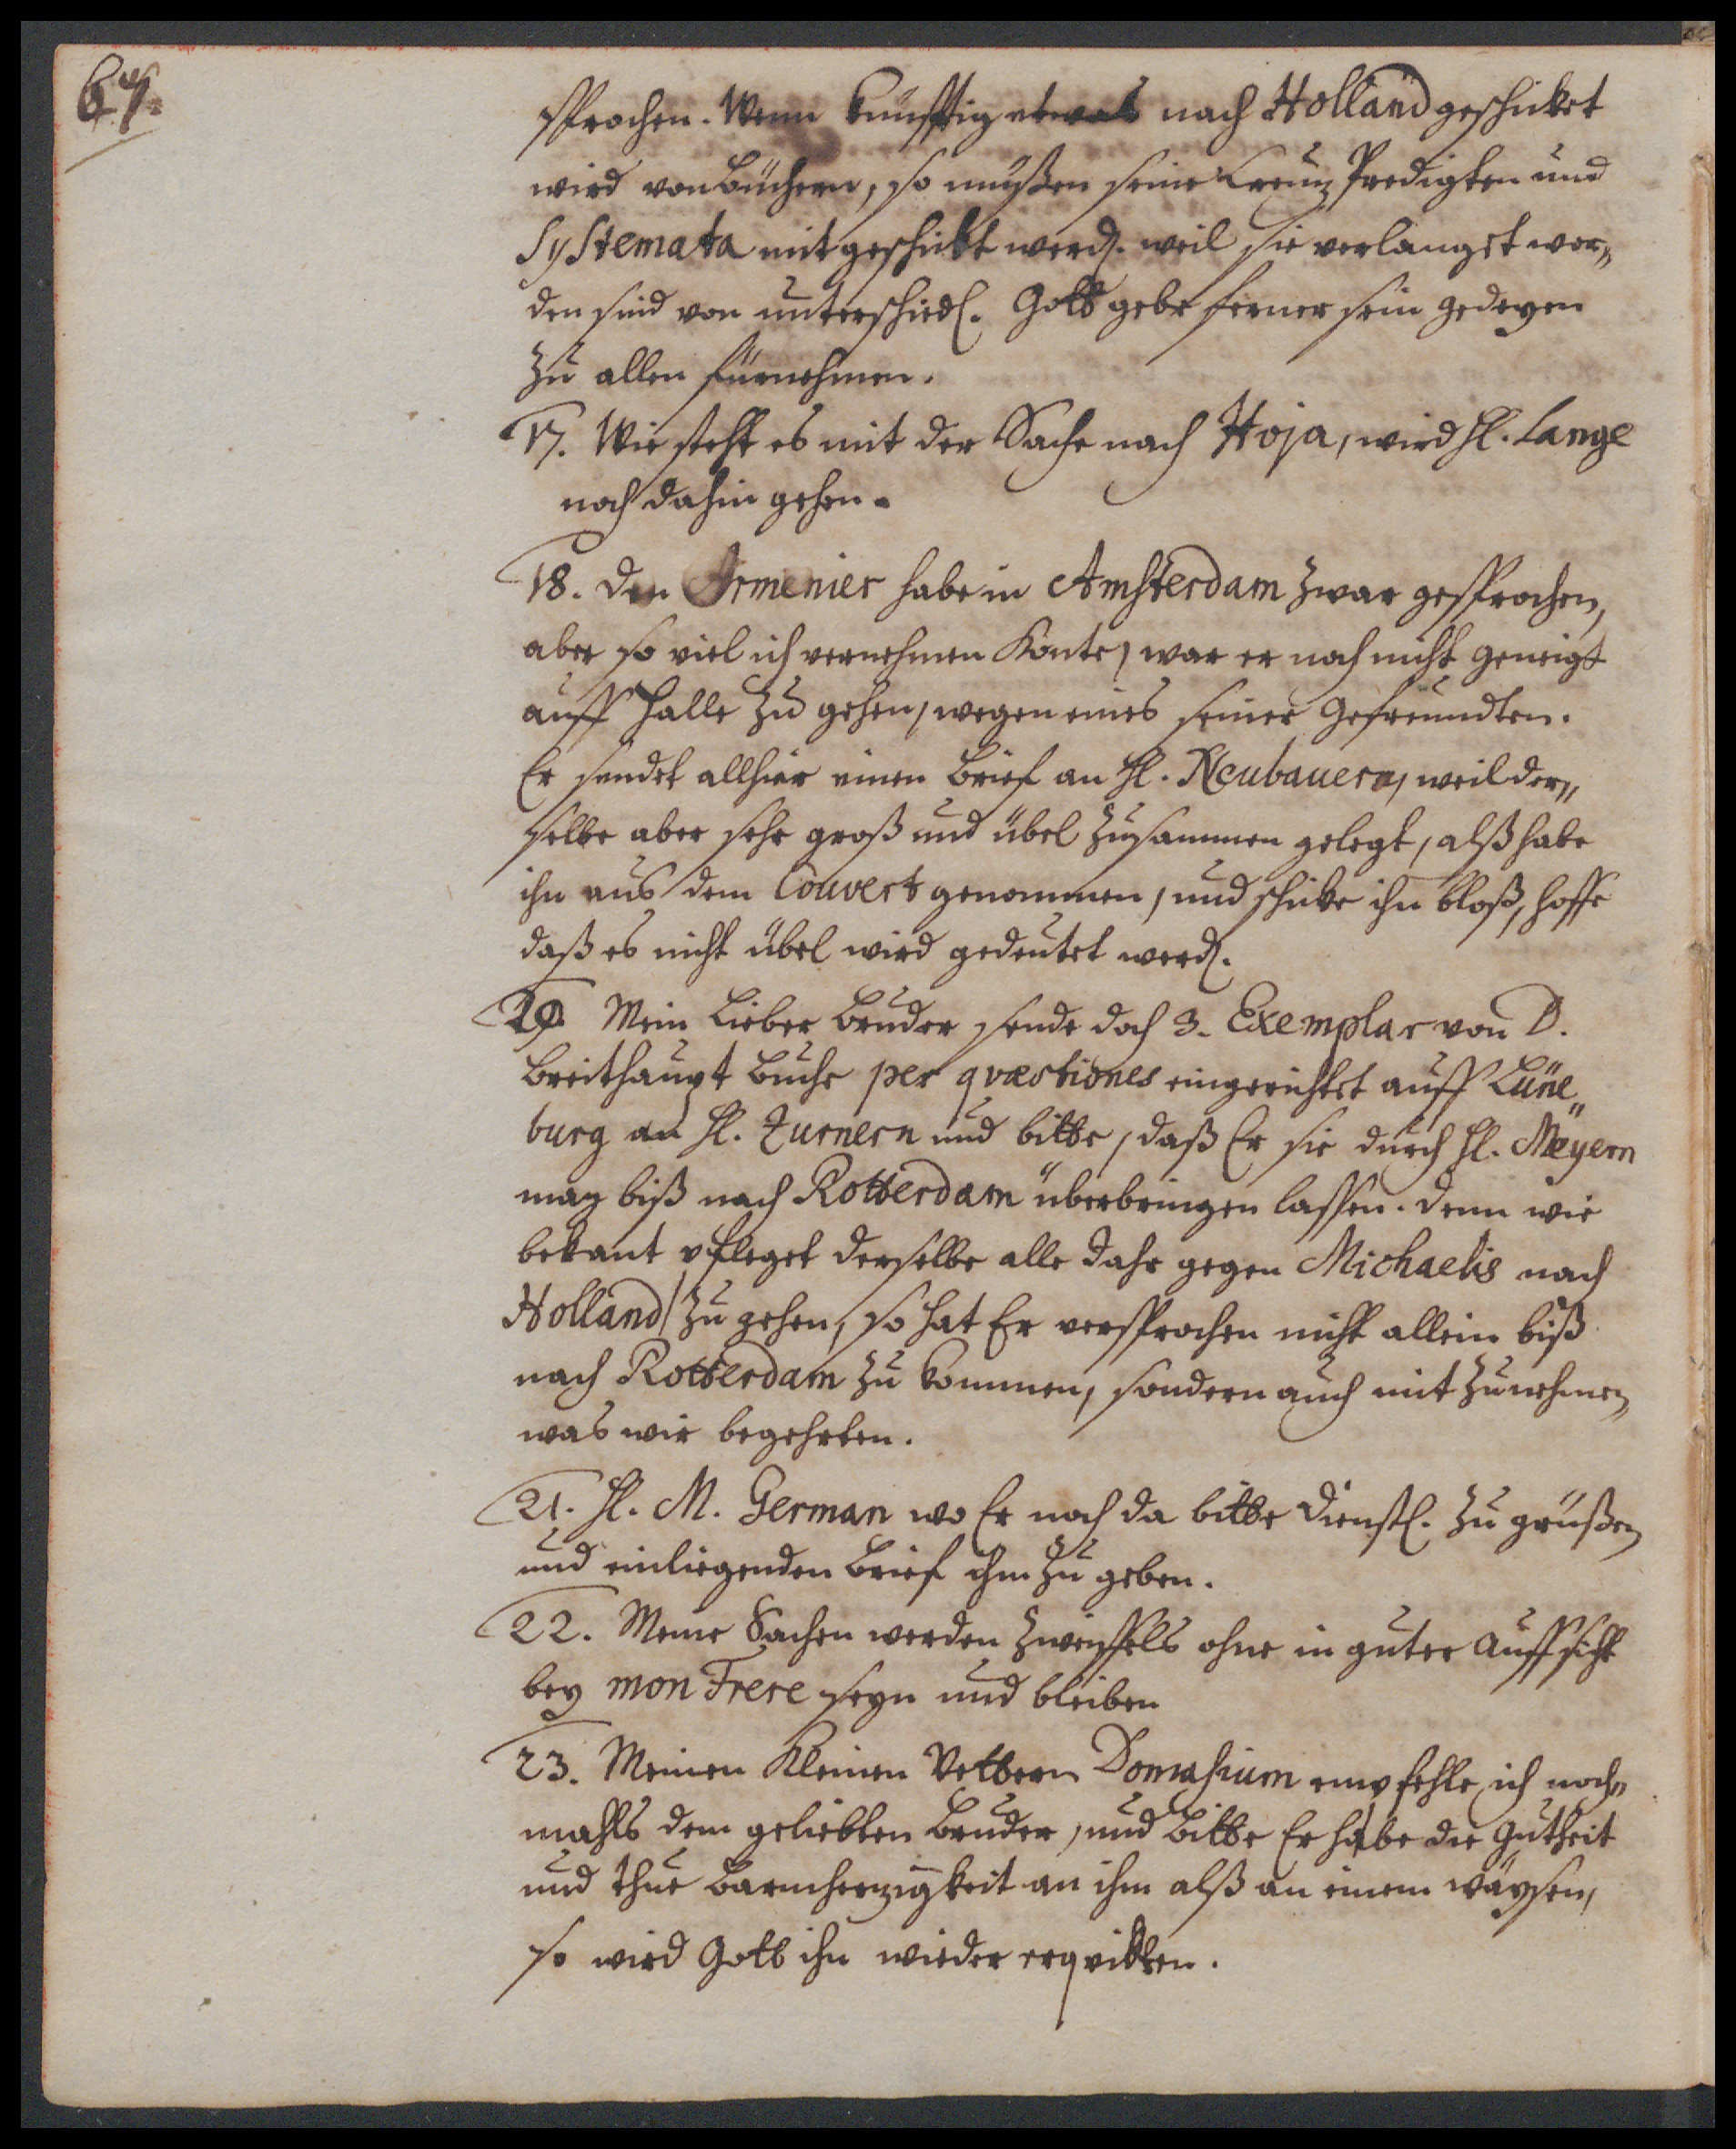 67.
sprochen. Wenn künfftig etwas nach Holland geschicket
wird von Büchern, so müßen seine Creuz Predigten und
Systemata mit geschikt werd. weil sie verlanget wor„
den sind von unterschiedl. Gott gebe ferner sein gedeyen
zu allen fürnehmen.
17. Wie steht es mit der Sache nach Hoja, wird Hl. Lange
noch dahin gehen.
18. Den Armenier habe in Amsterdam zwar gesprochen,
aber so viel ich vernehmen konte, war er noch nicht geneigt
auff Halle zu gehen, wegen eines seiner Gefreundten.
Er sendet allhier einen Brief an Hl. Neubauern, weil der„
selbe aber sehr groß und übel zusammen gelegt, alß habe
ihn aus dem Couvert genommen, und schicke ihn bloß, hoffe
daß es nicht übel wird gedeutet werd.
Mein Lieber Bruder sende doch 3. Exemplar von D.
Breithaupt Buche per qvæstiones eingerichtet auff Lüne„
burg an Hl. Zurnern und bitte, daß Er sie durch Hl. Meyern
mag biß nach Rotterdam überbringen lassen. Denn wie
bekant pfleget derselbe alle Jahr gegen Michaelis nach
Holland zu gehen, so hat Er versprochen nicht allein biß
nach Rotterdam zu kommen, sondern auch mit zunehmen,
was wir begehrten.
21. Hl. M. German wo Er noch da bitte dienstl. zu grüßen
und einliegenden Brief ihm zu geben.
22. Meine Sachen werden zweiffels ohne in guter Auffsicht
bey mon Frere seyn und bleiben
23. Meinen kleinen Vettern Domasium empfehle ich noch„
mahls dem geliebten Bruder, und bitte Er habe die Gütheit
und thue Barmherzigkeit an ihm alß an einem wäysen,
so wird Gott ihn wieder erqvikken.